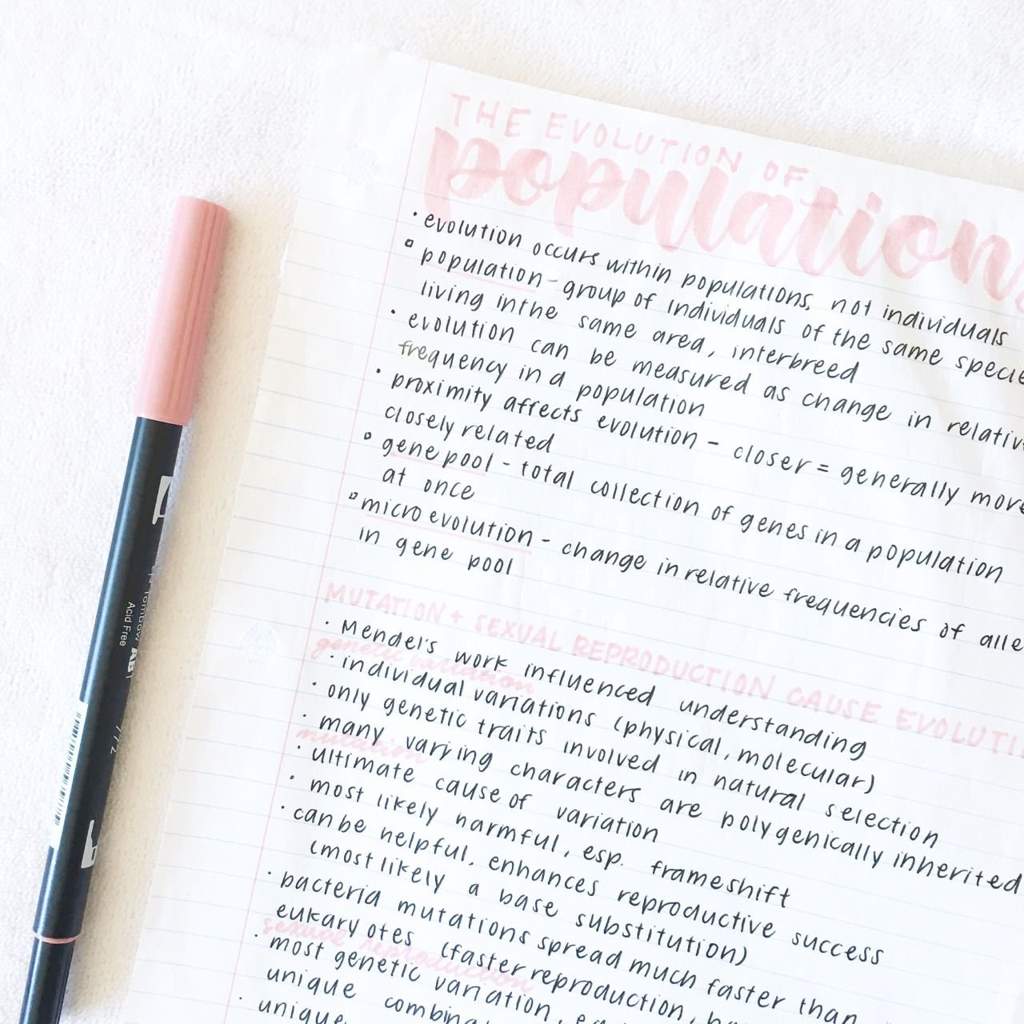 THE EVOLUTION OF
populations
• evolution occurs within populations, not individuals
▫ population - group of individuals of the same specie
living in the same area, interbreed
• evolution can be measured as change in relativ
frequency in a population
• proximity affects evolution - closer = generally more
closely related
▫ gene pool - total collection of genes in a population
at once
▫ micro evolution - change in relative frequencies of alle
in gene pool
MUTATION + SEXUAL REPRODUCTION CAUSE EVOLUTI
• Mendel's work influenced understanding
genetic variation
• individual variations (physical, molecular)
• only genetic traits involved in natural selection
• many varying characters are polygenically inherited
mutation
• ultimate cause of variation
• most likely harmful, esp. frameshift
• can be helpful, enhances reproductive success
(most likely a base substitution)
• bacteria mutations spread much faster than
eukaryotes (faster reproduction,
sexual reproduction
• most genetic variation,
unique
• unique
Tombow AB
Acid Free
772